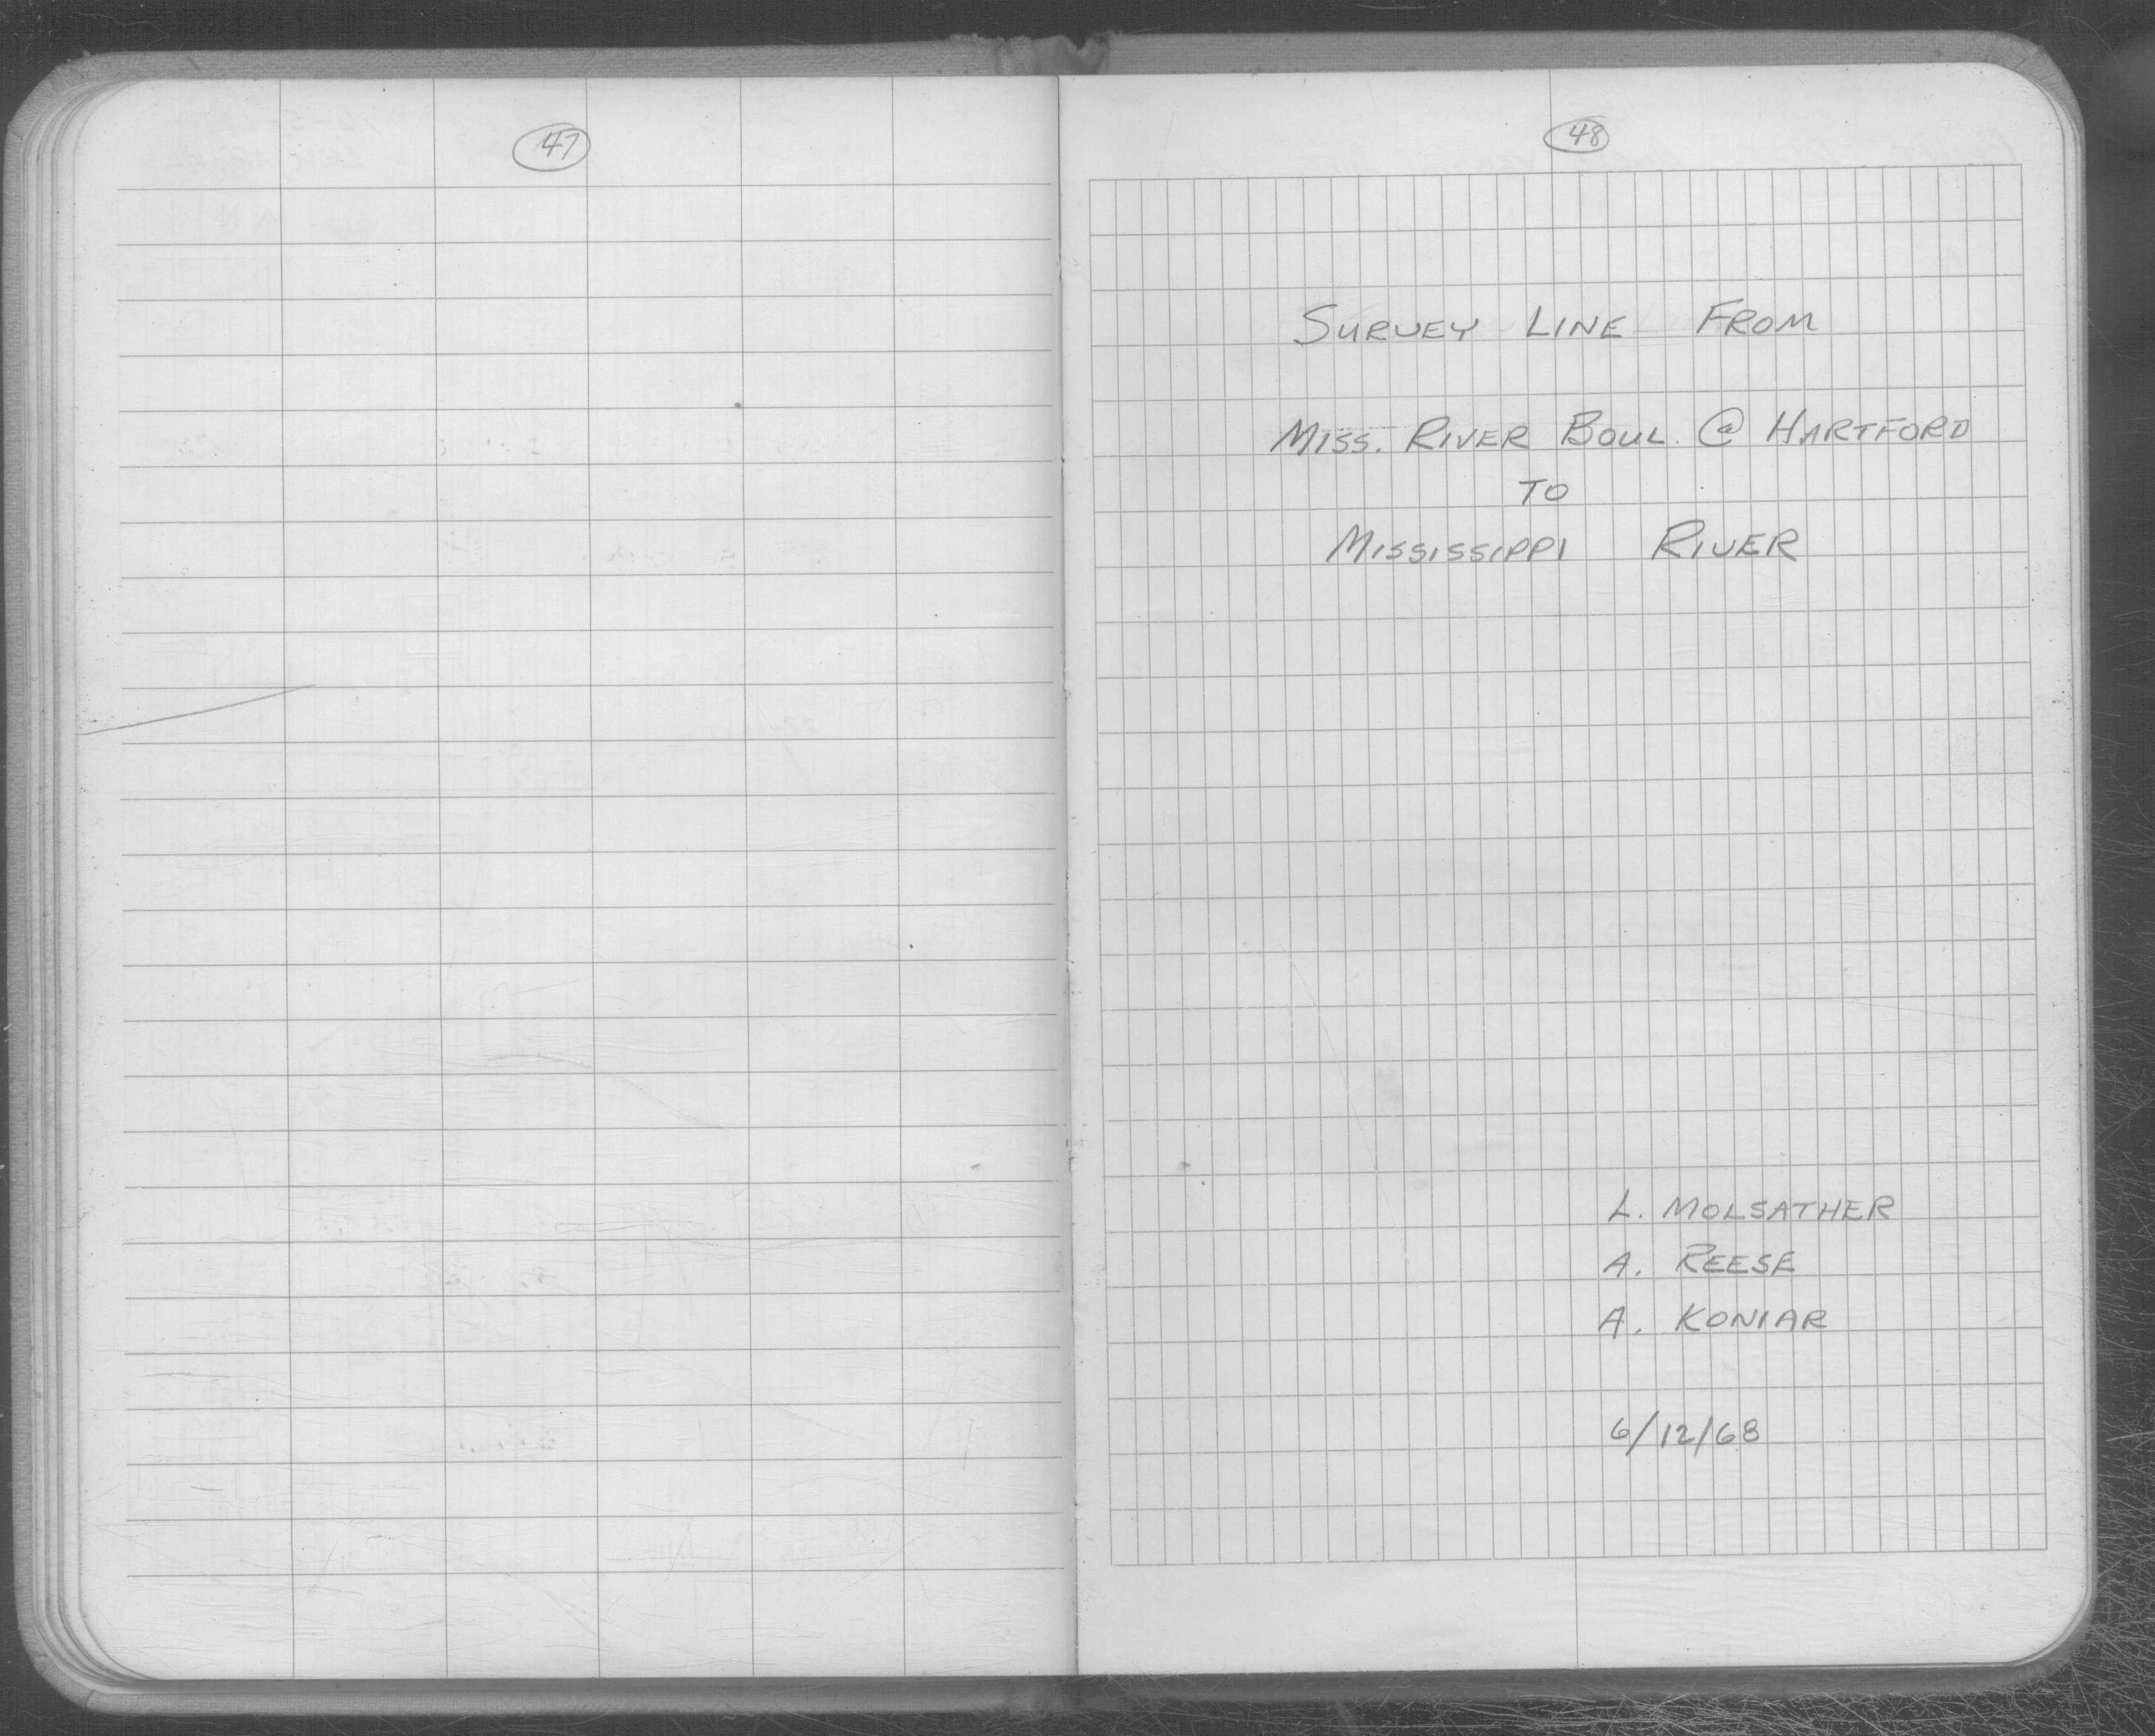 47
48
SURVEY LINE FROM
MISS. RIVER BOUL. @ HARTFORD
TO
MISSISSIPPI RIVER
L. MOLSATHER
A. REESE
A. KONIAR
6/12/68